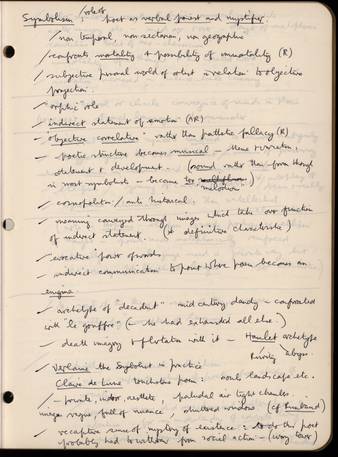 Symbolism: / role of poet as verbal priest and mystifier.
/ non temporal, non sectarian, non geographic
/ confronts mortality & possibility of immortality (R)
/ subjective personal world of artist in relation to objective
projection.
/ orphic role
/ indirect statement of emotion (NR)
/ "objective correlative" rather than pathetic fallacy (R)
/ poetic structure becomes musical - theme recurrence,
statement & development. (sound rather than form though
in most symbolists - become too
"melodious")
/ cosmopolitan / anti historical.
/ meaning conveyed through images which take over function
of indirect statement. (a definitive characteristic)
/ evocative power of words
/ indirect communication to point where poem becomes an
enigma
/ archetype of "decadent" - mid century dandy - confronted
with "le gouffre" (- he had exhausted all else.)
/ death imagery & flirtation with it - Hamlet archetype
abyss.
/ Verlaine the Symbolist in practice
Claire de Lune Watteau poem: soul landscape etc.
/ - private, indoor, aesthete, light changes.
image vague, full of nuance, shuttered windows (cf Rimbaud)
/ recapture sense of mystery of existence: to do this poet
probably had to withdraw from social action - (ivory tower)